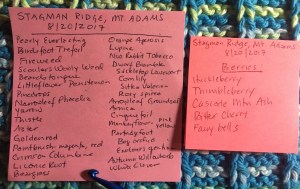 STAGMAN RIDGE, MT. ADAMS
8/20/2017
Pearly Everlasting
Birdsfoot Trefoil
Fireweed
Scouler's Woolly Weed
Beardstongue
Littleflower Penstemon
Pinedrops
Varileaf Phacelia
Yarrow
Thistle
Aster
Goldenrod
Paintbrush magenta, red
Crimson Columbine
Licorice Root
Beargrass
Orange Agoseris
Lupine
Also Rabbit Tobacco
Dwarf Bramble
Sickletop Lousewort
Comfily
Sitka Valerian
Rosy Spirea
Arrowleaf Groundsel
Arnica
Cinquefoil
Monkeyflower pink yellow
Partridgefoot
Bog orchid
Explorer's gentian
Autumn Willowherb
White Clover
Stagman Ridge, Mt Adams
8/20/2017
Berries:
Huckleberry
Thimbleberry
Cascade Mtn. Ash
Bitter Cherry
Fairy bells